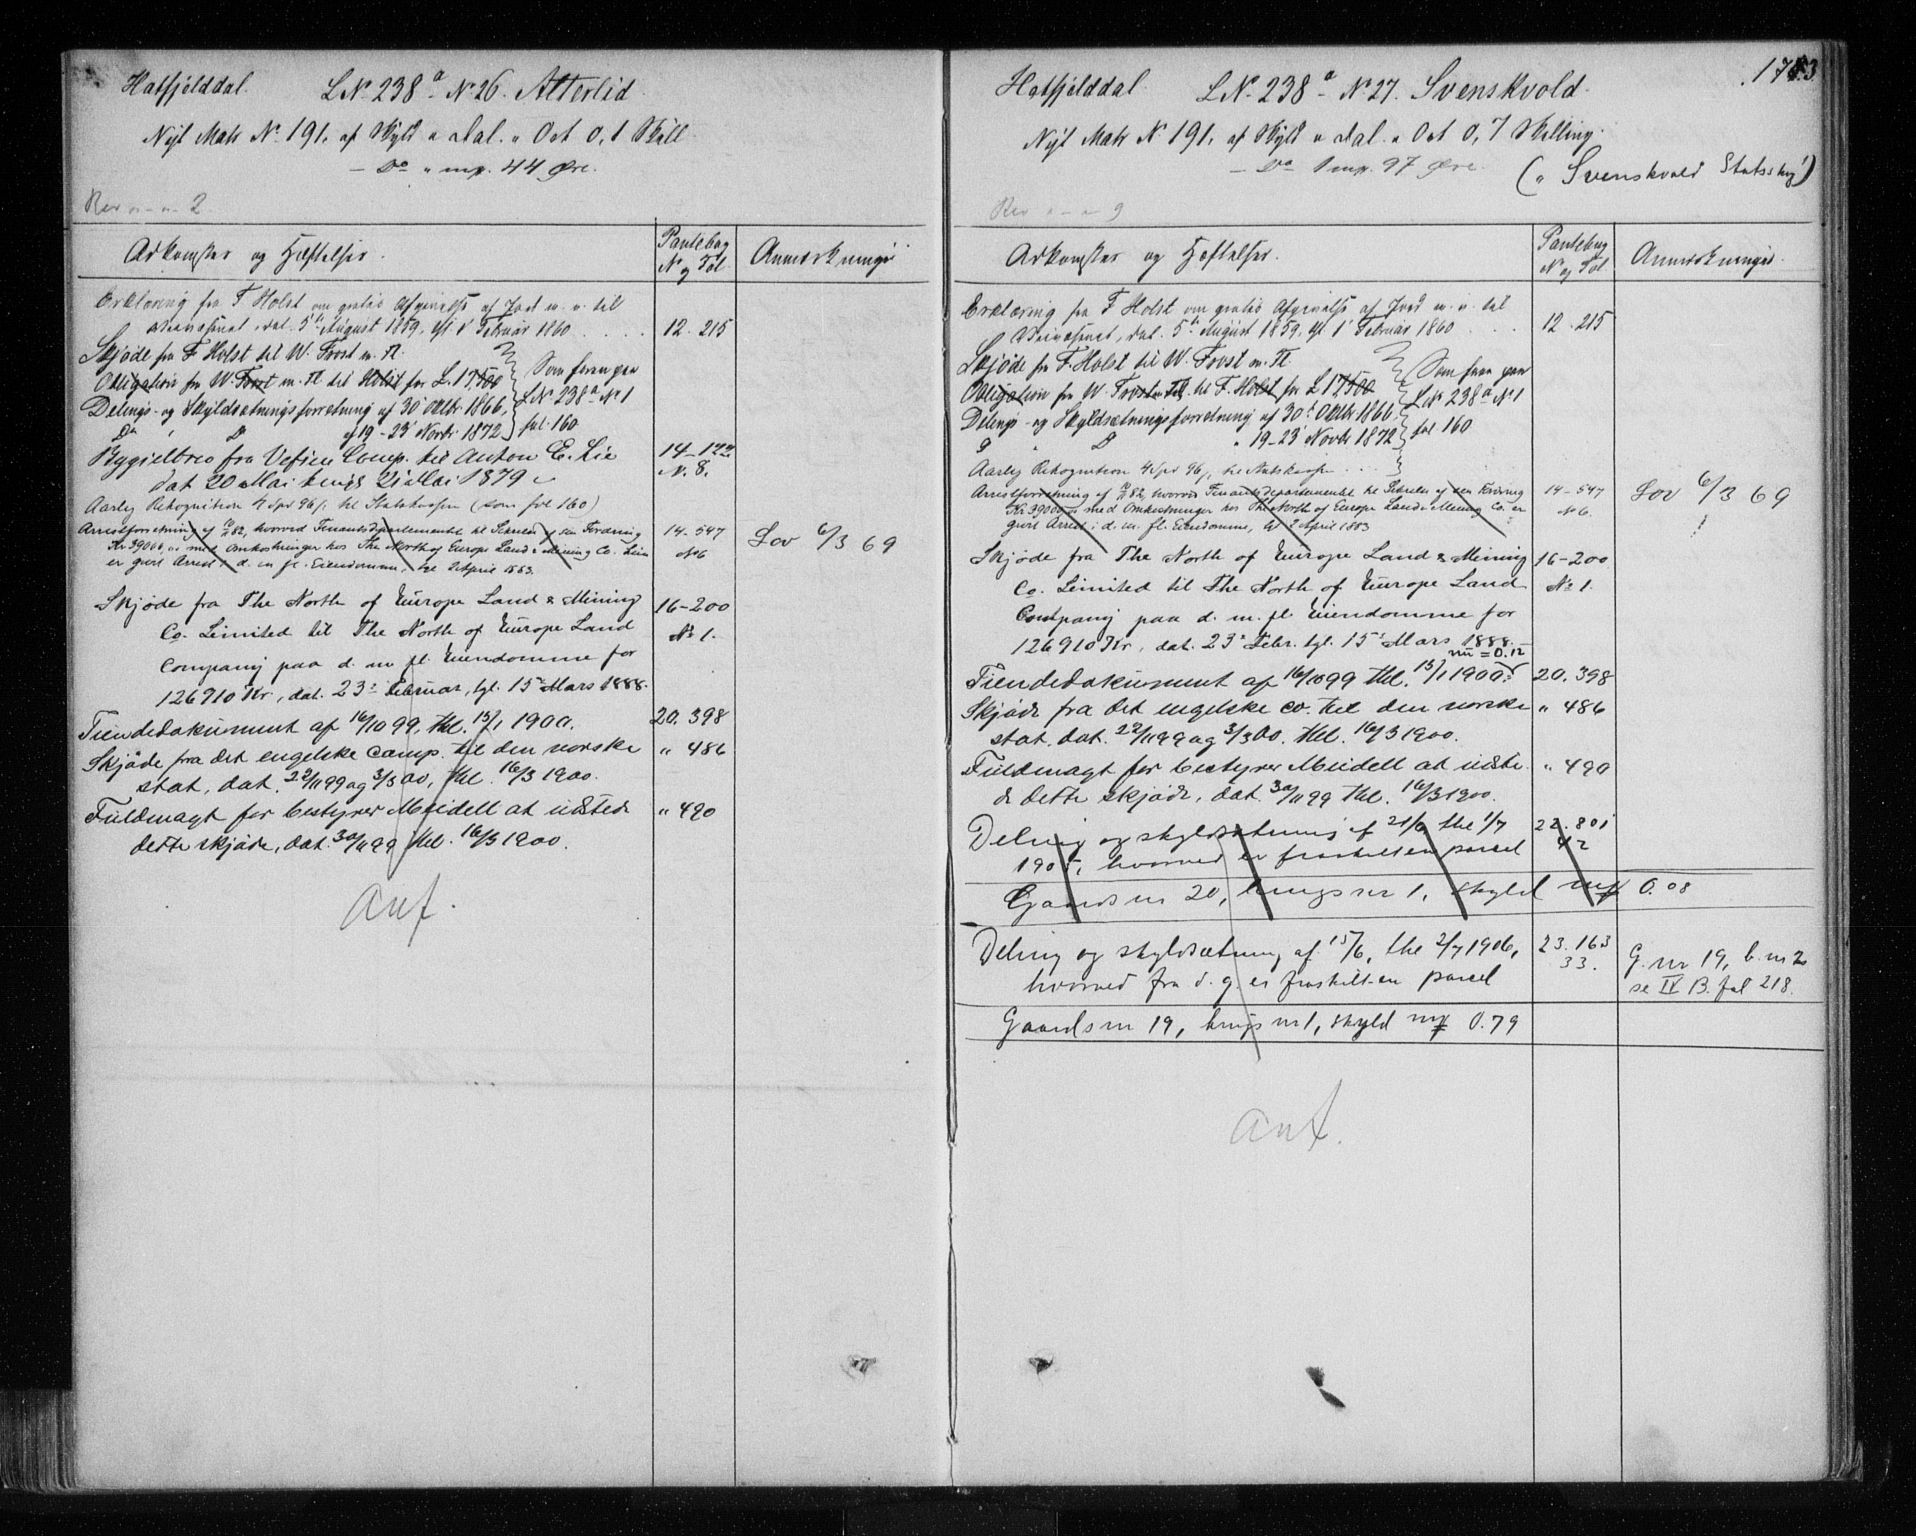 Hatfjelddal. L.No. 238 a No 26. Atterlid.
Nyt Matr No. 191, af Skyld " Dal. " Ort 0,1 Skill
— Do " mrk. 44 Øre.
Rev " - " 2.
Adkomster og Hæftelser.
Pantebog
No og Fol.
Anmærkninger
Erklæring fra F Holst om gratis Afgivelse af Jord m. v. til
Veivæsenet, dat. 5te August 1859, tgl. 1 Februar 1860 . . . . 12. 215
Skjøde fra F Holst til W. Frost m. Fl.
Obligation fra W. Frost m. Fl til Holst for L. 17,500
Delings- og Skyldsætningsforretning af 30 Oktbr. 1866,
Do " D af 19-23 Novbr 1872
Som foran paa
L.No 238 a No 1
fol. 160
Bygselbrev fra Vefsen Comp. til Anton E. Lie 14-
dat 20 Mai tingl. 21 Mai 1879. N. 8.
Aarlig Rekognition 4 Spd 96 β til Statskassen (som fol 160)
Arrestforretning af 82, hvorved Finantsdepartementet til Sikkerhed af sin Fordring 14. 547
Kr 39000, og med Omkostninger hos The North of Europe Land & Mining Co. Lim No 6
er gjort Arrest i d. m fl. Eiendomme, tgl. 2 April 1883.
Lov 6/3 69
Skjøde fra The North of Europe Land & Mining 16-200
Co. Limited til The North of Europe Land No 1.
Company paa d. m fl. Eiendomme for
126910 Kr, dat. 23 Februar, tgl. 15 Mars 1888.
Tiendedokument af 16/10 99, thl. 15/1 1900. 20. 398
Skjøde fra det engelske comp. til den norske " 486
stat, dat. 22/11 99 og 3/3 00, thl. 16/3 1900.
Fuldmagt for bestyrer Meidell at udstede " 490
dette skjøde, dat. 30/11 99 thl. 16/3 1900.
Anf.
Hatfjelddal. L.No. 238 a No 27. Svenskvold.
Nyt Matr No 191, af Skyld " Dal. " Ort 0,7 Skilling.
— Do 1 mrk. 97 Øre.
(" Svenskvold Statsskog)
Rev " - " 9
Adkomster og Hæftelser.
Pantebog
No og Fol
Anmærkninger.
Erklæring fra F Holst om gratis Afgivelse af Jord m. v. til
Veivæsenet, dat. 5te August 1859, tgl 1 Februar 1860 . . . 12. 215
Skjøde fra F. Holst til W. Frost m. Fl.
Obligation fra W. Frost m Fl til F. Holst for L 17,500
Delings- og Skyldsætningsforretning af 30 Oktbr 1866
D " D " 19-23 Novbr 1872
Som foran paa
L.No 238 a No 1
fol 160
Aarlig Rekognition 4 Spd 96 β, til Statskassen . . .
Arrestforretning af 82, hvorved Finantsdepartementet til Sikkerhed af sin Fordring 14-547
Kr 39000 og med Omkostninger hos The North of Europe Land & Mining Co. er No 6.
gjort Arrest i d. m. fl. Eiendomme, tgl 2 April 1883
Lov 6/3 69
Skjøde fra The North of Europe Land & Mining 16-200
Co. Limited til The North of Europe Land No 1.
Company paa d. m. fl Eiendomme for
126910 Kr, dat. 23 Febr. tgl. 15 Mars 1888.
nu = 0.12
Tiendedokument af 16/10 99 thl. 15/1 1900. 20. 398
Skjøde fra det engelske co. til den norske " 486
stat, dat. 22/11 99 og 3/3 00. thl. 16/3 1900.
Fuldmagt for bestyrer Meidell at udste- " 490
de dette skjøde, dat. 30/11 99 thl. 16/3 1900.
Deling og skyldsætning af 21/6 thl 1/7 22. 801
1905, hvorved er fraskilt en parcel 42
Gaards nr 20, brugs nr 1, skyld mk 0.08
Deling og skyldsætning af 15/6, thl 2/7 1906, 23. 163
hvorved fra d. g. er fraskilt en parcel 33.
G. nr 19, b. nr 2
se IV B. fol 218.
Gaards nr 19, brugs nr 1, skyld mk 0.79
Anf.